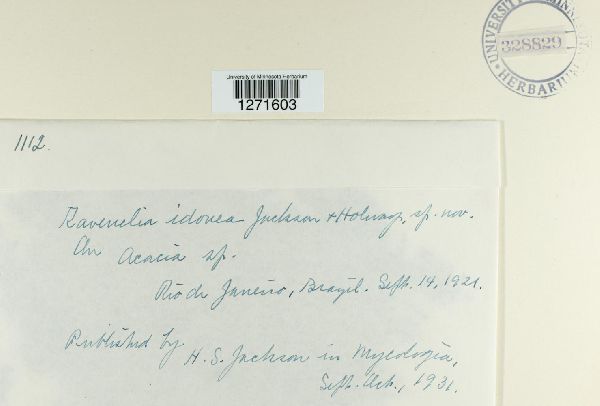 UNIVERSITY MINN
328829
HERBARIUM
University of Minnesota Herbarium
1271603
1112.
Ravenelia idonea Jackson & Holway, sp. nov.
On Acacia sp.
Rio de Janeiro, Brazil. Sept. 14, 1921.
Published by
H. S. Jackson in Mycologia,
Sept. Oct., 1931.